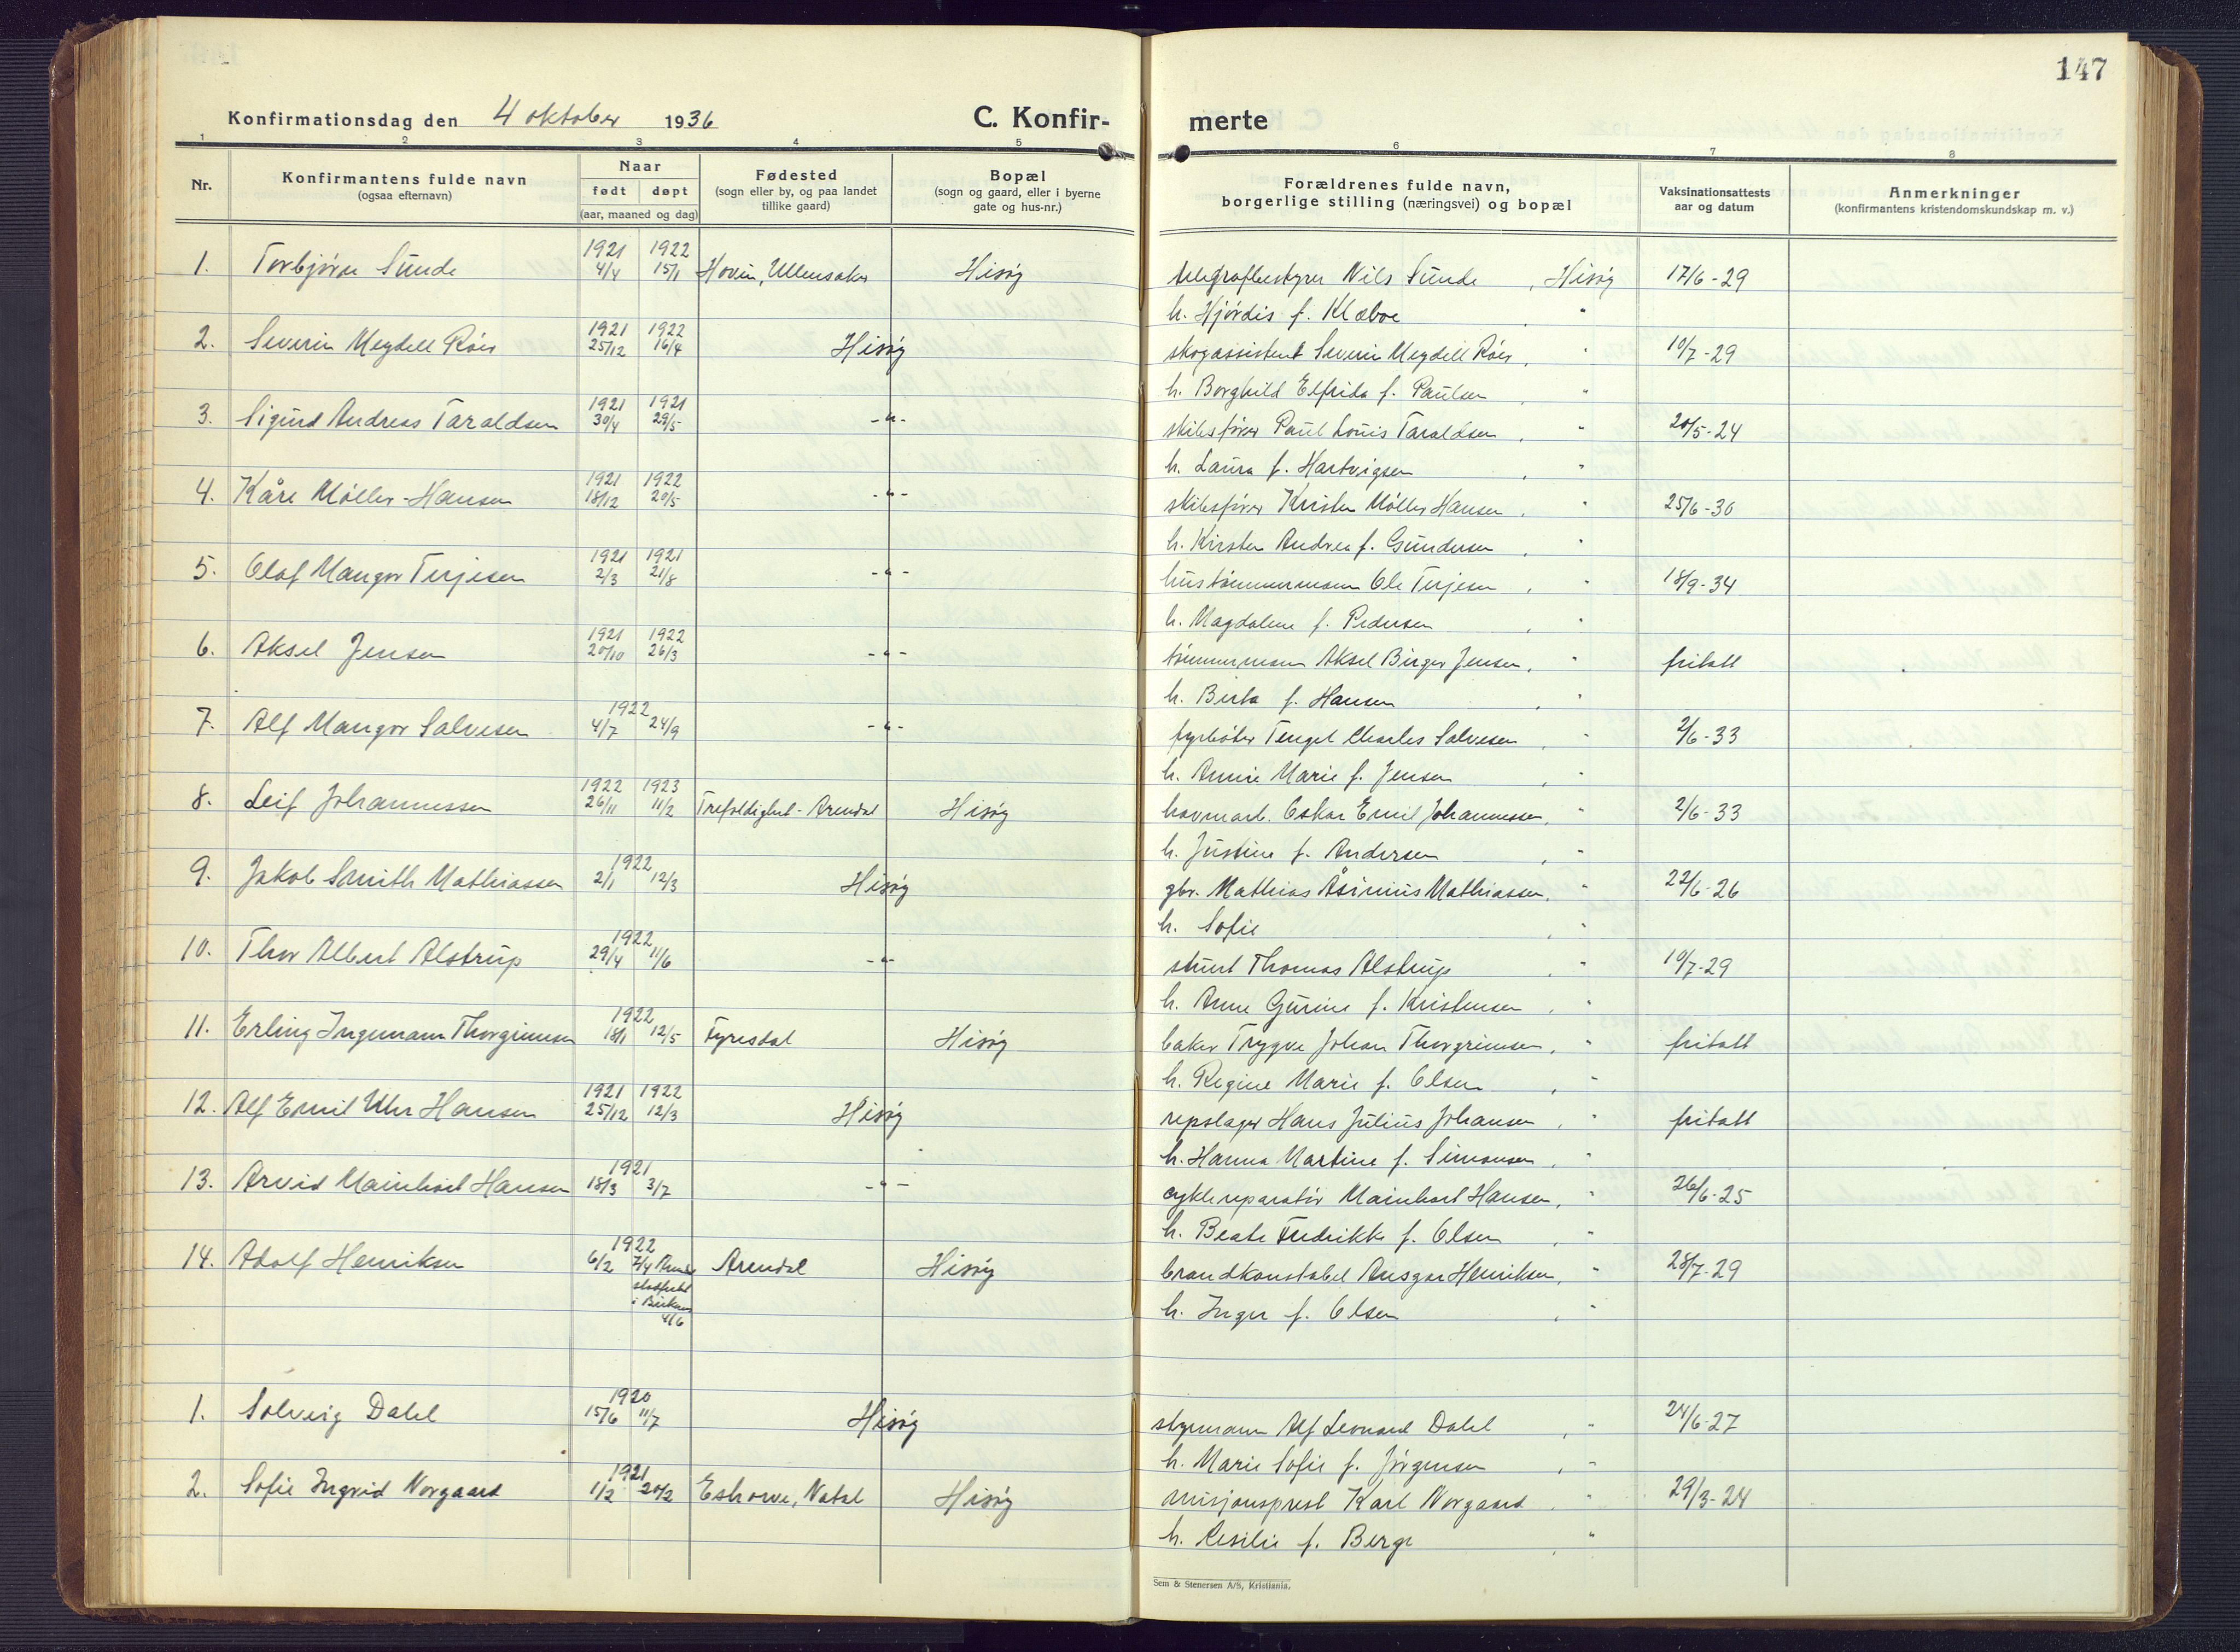 147
Konfirmationsdag den 4 oktober 1936 C. Konfir- merte
1 2 3 4 5 6 7 8
Nr. Konfirmantens fulde navn (ogsaa efternavn) Naar født døpt (aar, maaned og dag) Fødested (sogn eller by, og paa landet tillike gaard) Bopæl (sogn og gaard, eller i byerne gate og hus-nr.) Forældrenes fulde navn, borgerlige stilling (næringsvei) og bopæl Vaksinationsattests aar og datum Anmerkninger (konfirmantens kristendomskundskap m. v.)
1. Torbjørn Sunde 1921 4/4 1922 15/1 Hovin, Ullensaker Hisøy telegrafbestyrer Nils Sunde, Hisøy 17/6-29
h. Hjördis f. Klæboe, "
2. Severin Meydell Röer 1921 25/12 1922 16/4 Hisøy skogassistent Severin Meydell Röer, " 10/7-29
h. Borghild Elfrida f. Paulsen, "
3. Sigurd Andreas Taraldsen 1921 30/4 1921 29/5 -"- skibsfører Paul Louis Taraldsen, " 20/5-24
h. Laura f. Hartvigsen, "
4. Kåre Møller-Hansen 1921 18/12 1922 20/5 -"- skibsfører Kristen Møller Hansen, " 25/6-30
h. Kirsten Andrea f. Gundersen, "
5. Olaf Mangor Terjesen 1921 2/3 1921 21/8 -"- hustømmermann Ole Terjesen, " 18/9-34
h. Magdalene f. Pedersen, "
6. Aksel Jensen 1921 20/10 1922 26/3 -"- tømmermann Aksel Birger Jensen, " fritatt
h. Berta f. Hansen, "
7. Alf Mangor Salvesen 1922 4/7 24/9 -"- fyrbøter Tengel Charles Salvesen, " 2/6-33
h. Annie Marie f. Jensen, "
8. Leif Johannessen 1922 26/11 1923 11/2 Trefoldighet-Arendal Hisøy havnearb. Oskar Emil Johannessen, " 2/6-33
h. Justine f. Andersen, "
9. Jakob Smith Mathiassen 1922 2/1 12/3 Hisøy gbr. Mathias Åsinius Mathiassen, " 22/6-26
h. Sofie, "
10. Thor Albert Alstrup 1922 29/4 11/6 -"- stuert Thomas Alstrup, " 10/7-29
h. Anne Gurine f. Kristensen, "
11. Erling Ingemann Thorgrimsen 1922 18/1 12/5 Fyresdal Hisøy baker Trygve Johan Thorgrimsen, " fritatt
h. Regine Marie f. Olsen, "
12. Alf Emil Uhr Hansen 1921 25/12 1922 12/3 Hisøy repslager Hans Julius Johansen, " fritatt
h. Hanna Martine f. Simonsen, "
13. Arvid Mainhart Hansen 1921 18/3 3/7 -"- cykkereparatør Mainhart Hansen, " 26/6-25
h. Beate Fredrikke f. Olsen, "
14. Adolf Henriksen 1922 6/2 7/4 stadfestet i 4/6 Arendal Hisøy brandkonstabel Ansgar Henriksen, " 28/7-29
h. Inger f. Olsen, "
1. Solveig Dahl 1920 15/6 11/7 Hisøy styrmann Alf Leonard Dahl, " 24/6-27
h. Marie Sofie f. Jörgensen, "
2. Sofie Ingrid Norgaard 1921 1/2 20/2 Eshowe, Natal Hisøy misjonsprest Karl Norgaard, " 29/3-24
h. Resilie f. Berge, "
Sem & Stenersen A/S, Kristiania.